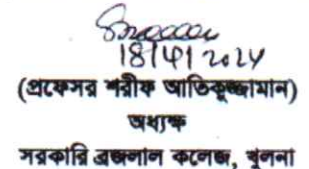 18/4/2024
(প্রফেসর শরীফ আতিকুজ্জামান)
অধ্যক্ষ
সরকারি ব্রজলাল কলেজ, খুলনা